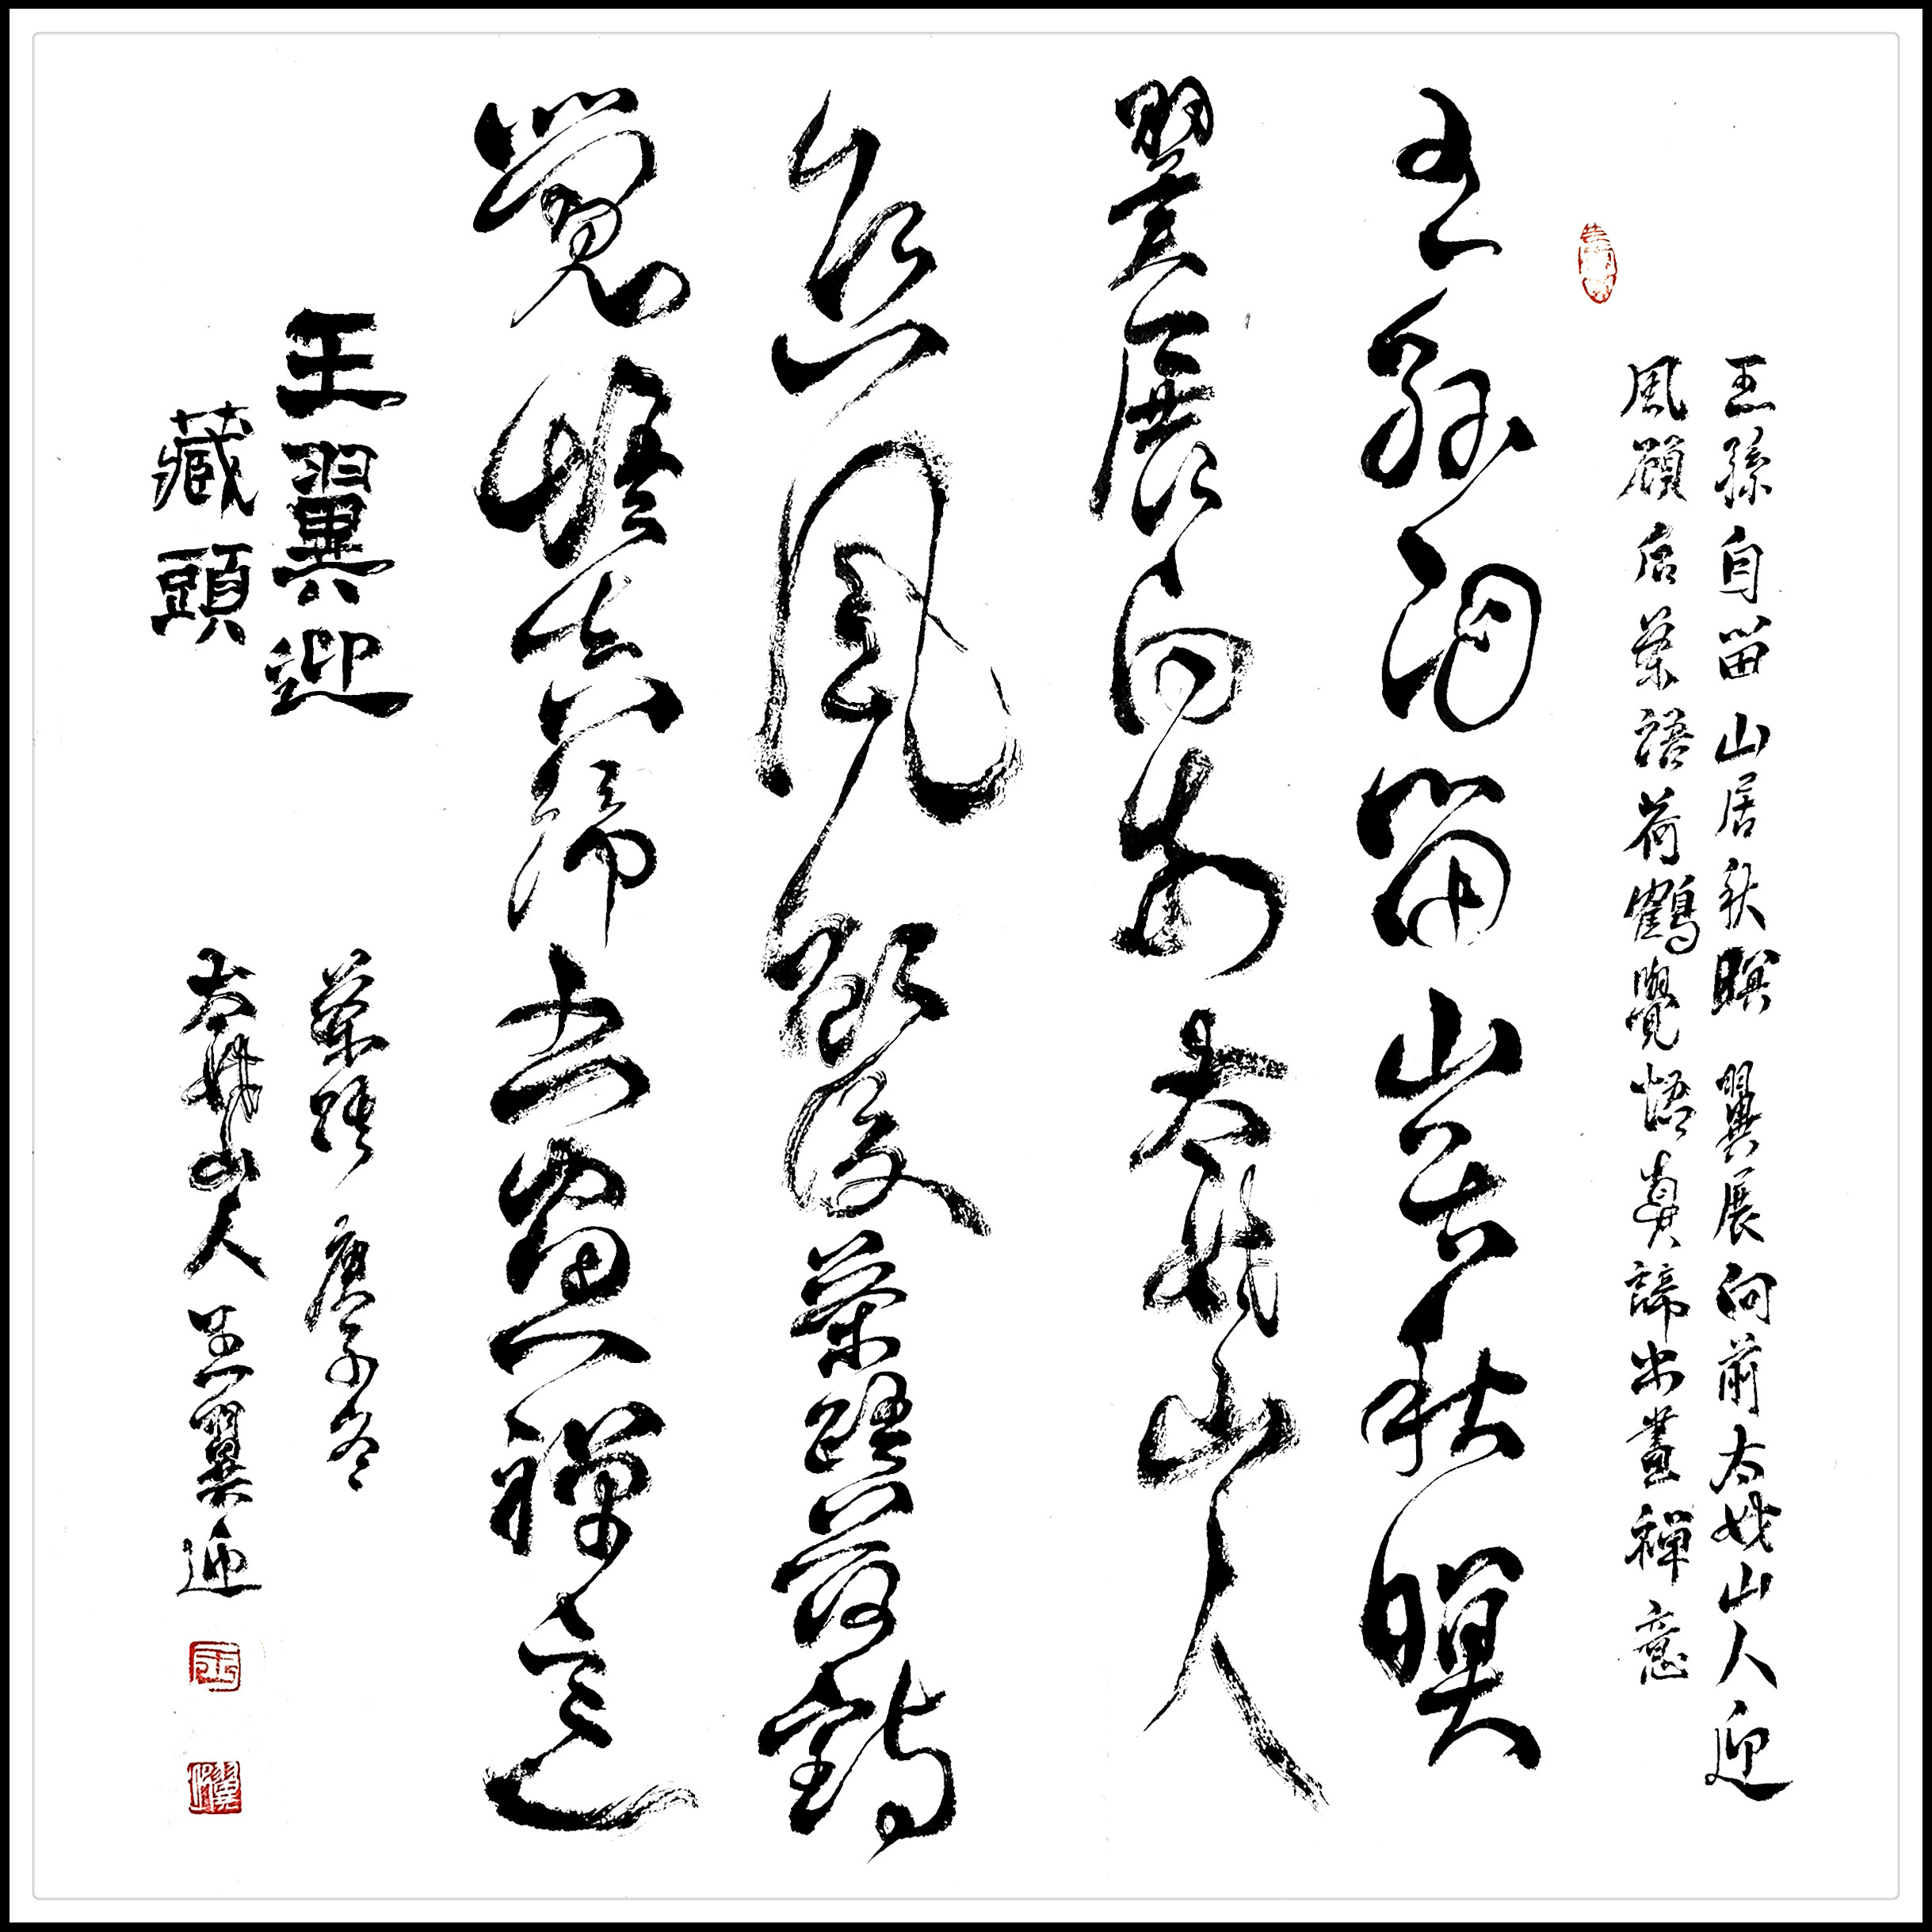 王孫自留山居秋暝翼展向前太姥山人迎
風顧后茶語荷鶴覺悟真諦出畫禪意
王孫自留山居秋暝
翼展向前太姥山人
迎風顧後茶語荷鶴
覺悟真諦出畫禪意
王翼迎
藏頭
茶語 庚子冬
太姥山人王翼迎